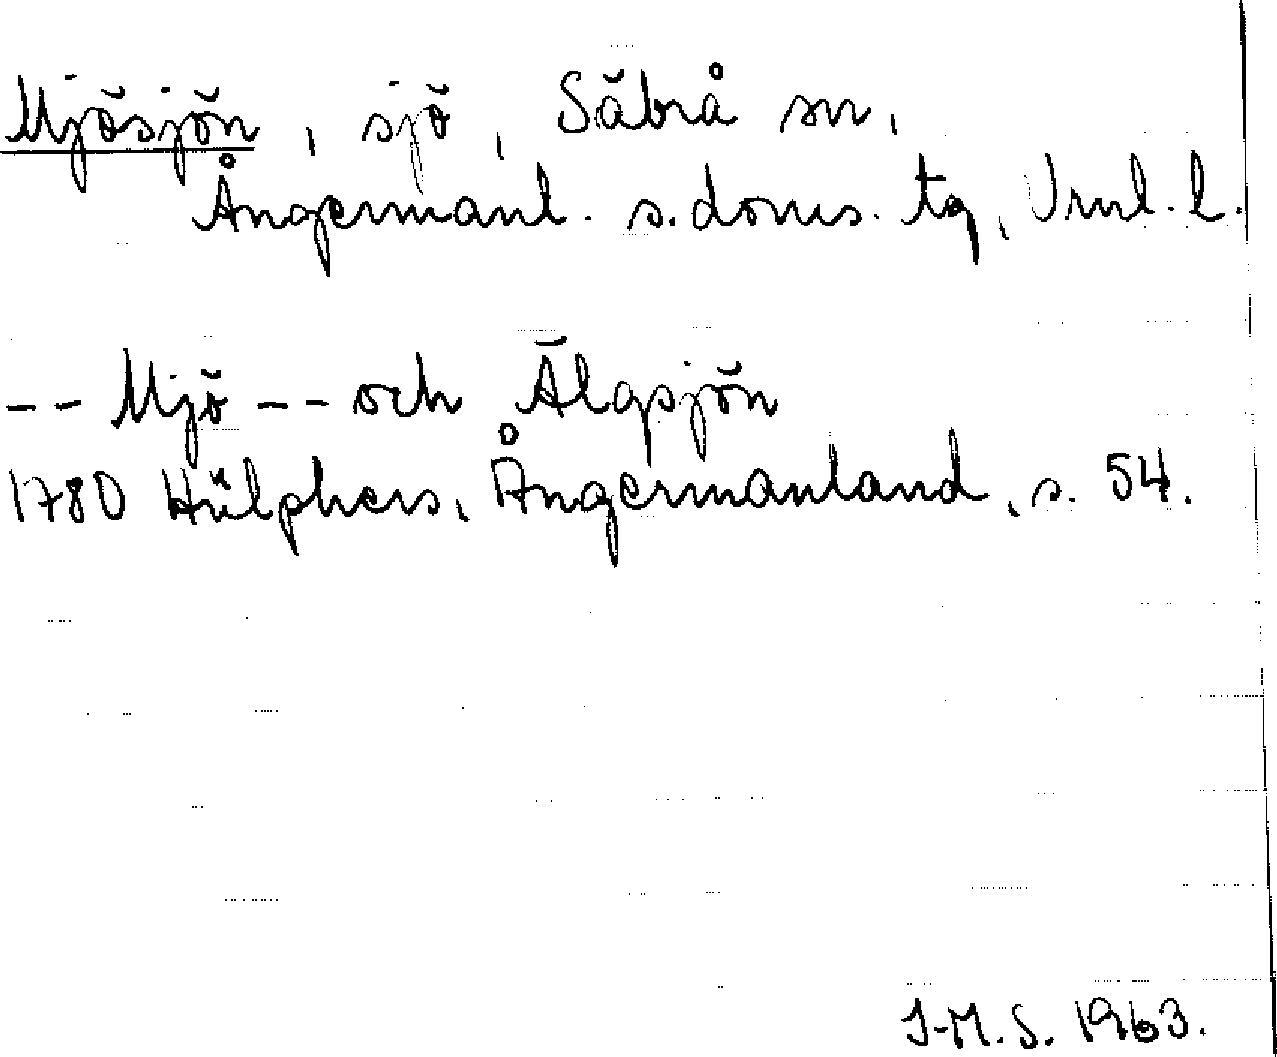 Mjösjön, sjö, Säbrå sn,
Ångermanl. s. doms. tg, Vrnl. l.
-- Mjö -- och Älgsjön
1780 Hülphers, Ångermanland, s. 54.
J-M. S. 1963.